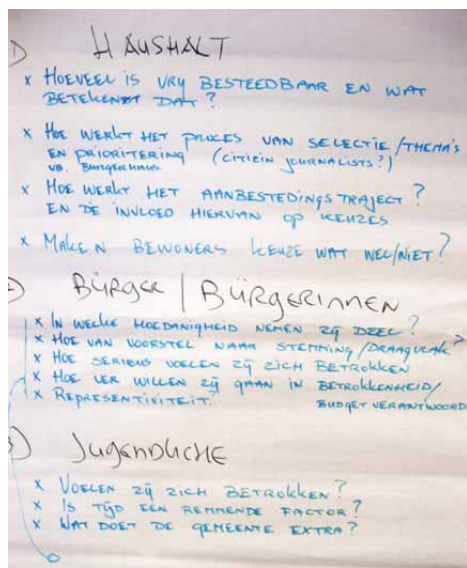 1) HAUSHALT
x HOEVEEL IS VRY BESTEEDBAAR EN WAT
BETEKENDT DAT?
x HOE WERKT HET PROCES VAN SELECTIE/THEMA'S
EN PRIORITERING (CITIZIN JOURNALISTS?)
VB. BURGERHAUS
x HOE WERKT HET AANBESTEDINGSTRAJECT?
EN DE INVLOED HIERVAN OP KEUZES
x MAKEN BEWONERS KEUZE WAT WEL/NIET?
2) BÜRGER | BÜRGERINNEN
x IN WELKE HOEDANIGHEID NEMEN ZIJ DEEL?
x HOE VAN VOORSTEL NAAR STEMMING/DRAAGVLAK?
x HOE SERIEUS VOELEN ZIJ ZICH BETROKKEN
x HOE VER WILLEN ZIJ GAAN IN BETROKKENHEID/
x REPRESENTIVITEIT? BUDGET VERANTWOORD
3) JUGENDLICHE
x VOELEN ZIJ ZICH BETROKKEN?
x IS TIJD EEN REMMENDE FACTOR?
x WAT DOET DE GEMEENTE EXTRA?